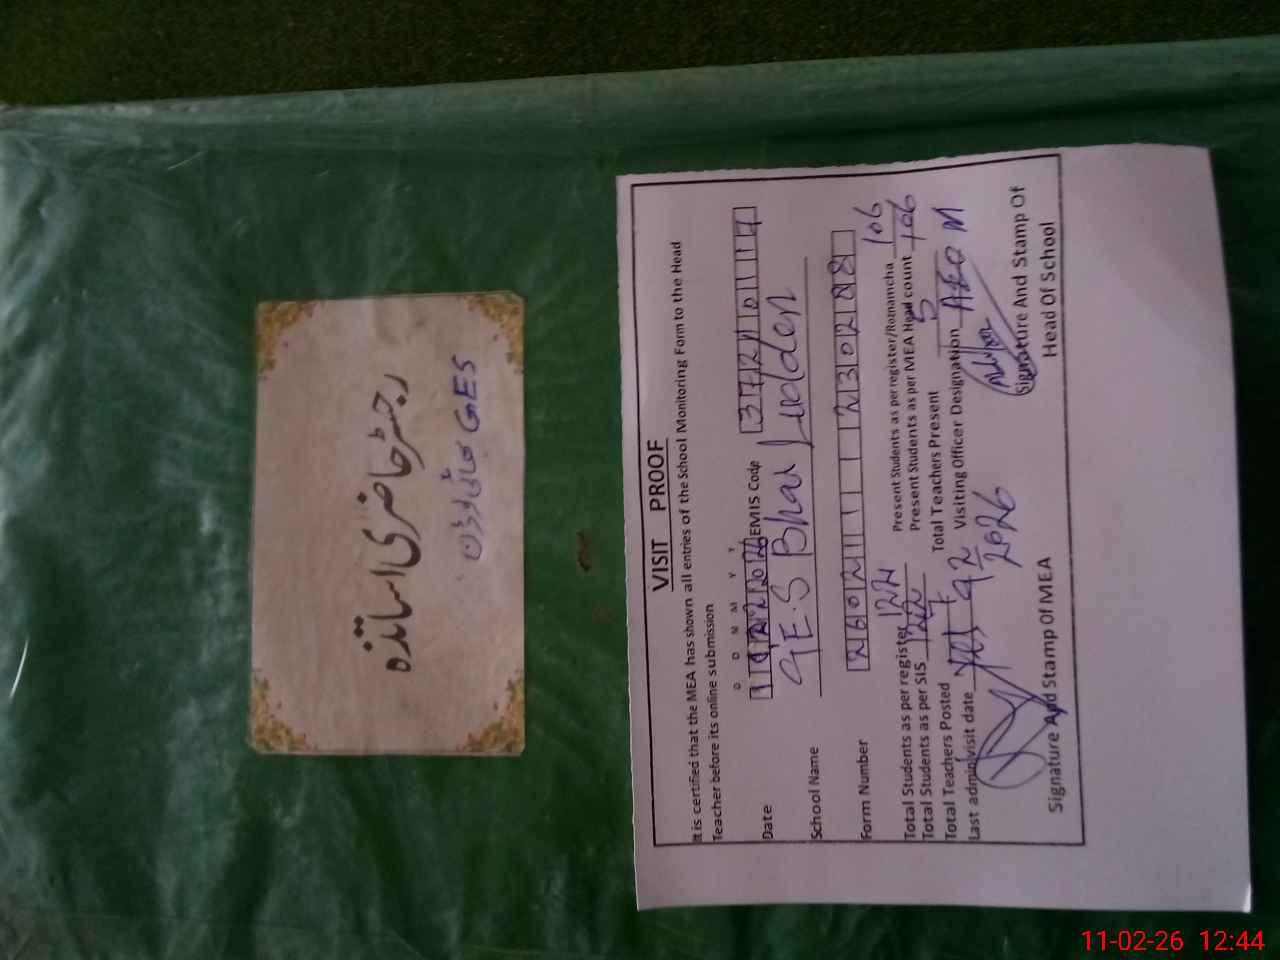 رجسٹر حاضری اساتذہ
GES بھائی لڈن
VISIT PROOF
It is certified that the MEA has shown all entries of the School Monitoring Form to the Head
Teacher before its online submission
D D M M Y Y
Date 11022026 EMIS Code 37210117
School Name G.E.S Bhai Ludden
Form Number
Total Students as per register 122 Present Students as per register/Roznamcha 106
Total Students as per SIS 122 Present Students as per MEA Head count 106
Total Teachers Posted 7 Total Teachers Present 5
Last admin visit date 2026 Visiting Officer Designation AEO M
Signature And Stamp Of MEA
Signature And Stamp Of
Head Of School
11-02-26 12:44